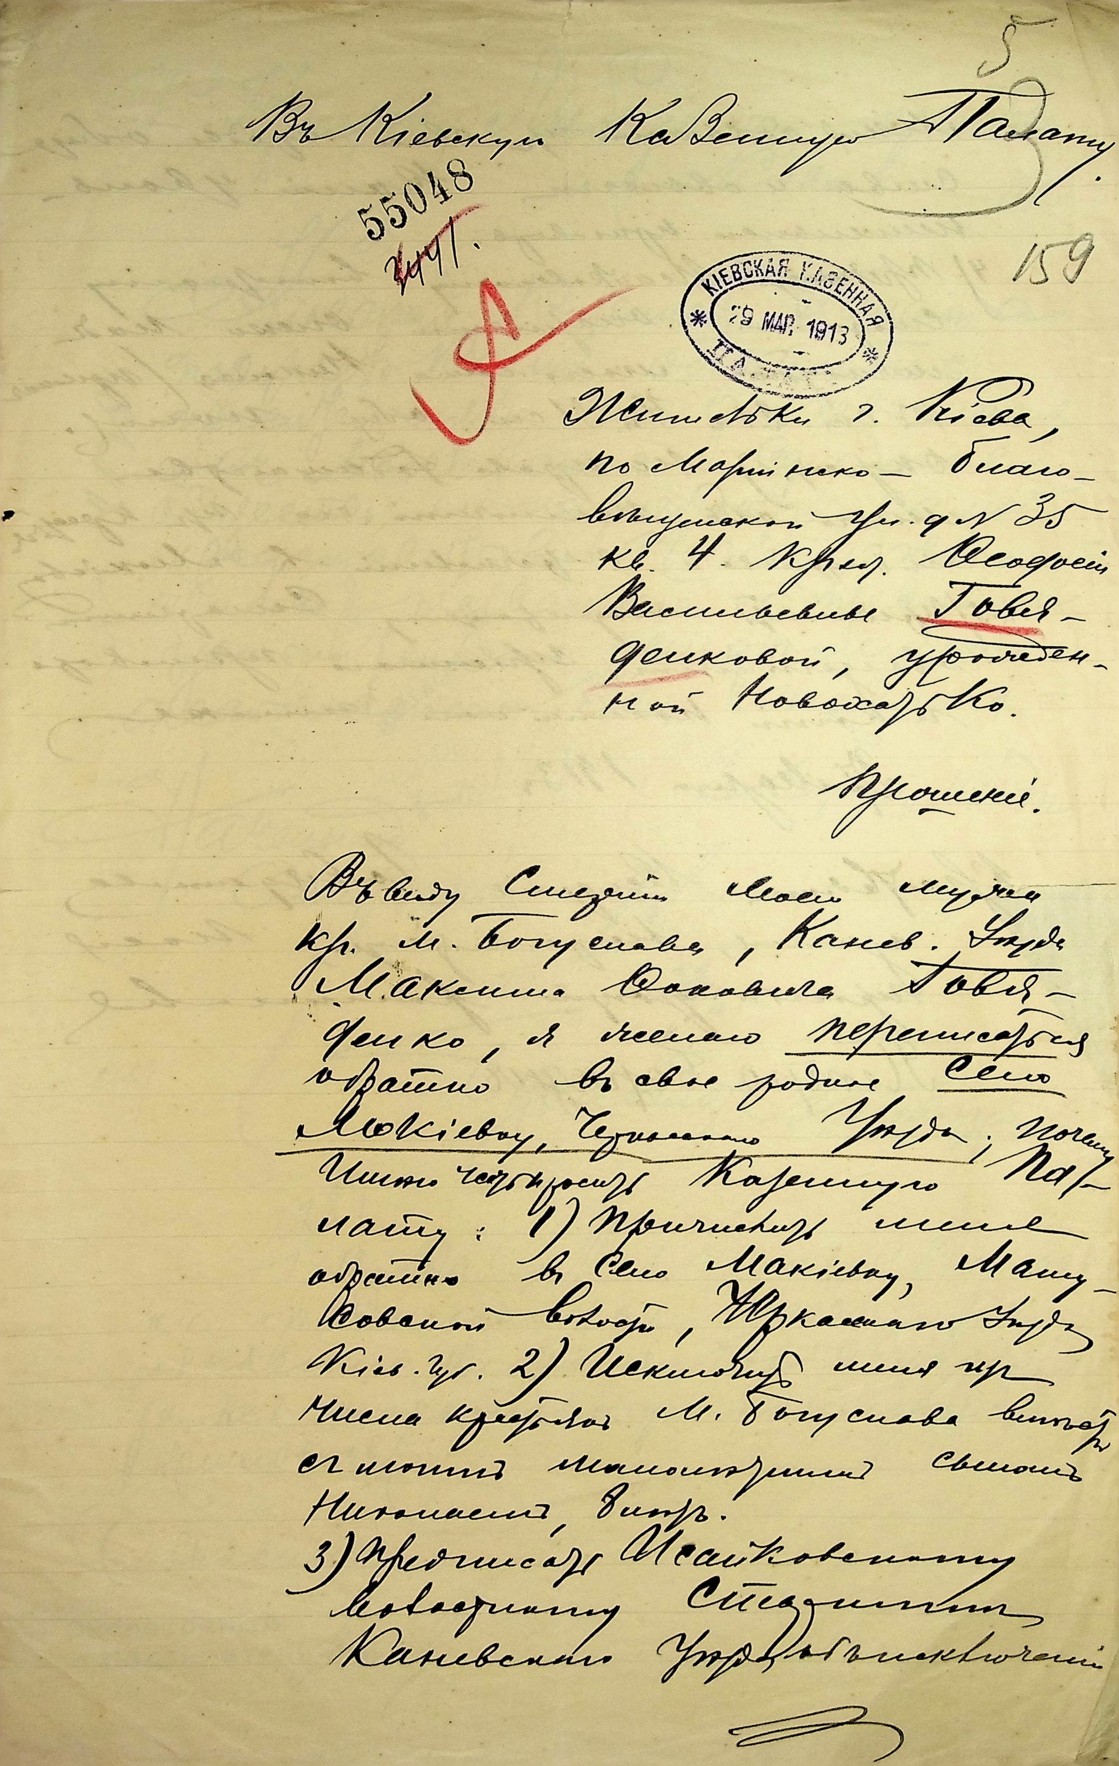 5
Въ Кіевскую Казенную Палату.
55048
159
КІЕВСКАЯ КАЗЕННАЯ
29 МАР. 1913
ПАЛАТА
Жительки г. Кіева,
по Маріинско- благо-
вѣщенской ул. д № 35
кв. 4. Крест. Ѳеодосіи
Васильевны Говя-
денковой, урожден-
ной Новохатько.
Прошеніе.
Въ виду Смерти моего мужа
кр. м. Богуслава, Канев. Уѣзда
Максима Фоковича Говя-
денко, я желаю переписаться
обратно въ свое родное село
Мокіевку, Черкасскаго Уѣзда, почему
Имѣю честь просить Казенную Па-
лату: 1) Причислить меня
обратно въ село Макіевку, Мату-
совской волости, Черкасскаго Уѣзда
Кіев. Губ. 2) Исключить меня изъ
числа крестьянъ М. Богуслава вмѣстѣ
съ моимъ малолѣтнимъ сыномъ
Николаемъ, 8 лѣтъ.
3) Предписать Исайковскому
волостному Старшинѣ
Каневскаго Уѣзда объ исключеніи